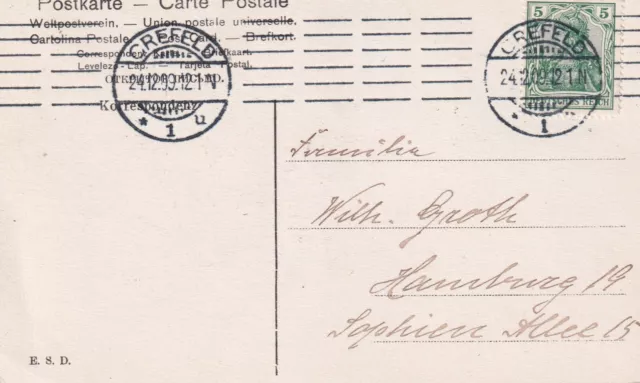 Postkarte — Carte Postale
Weltpostverein. — Union postale universelle.
Cartolina Postale — Post Card. — Brefkort.
Correspondenz — Briefkaart.
Levelezö-Lap. — Tarjeta Postal.
Korrespondenz
CREFELD
24.12.09.12-1 N
* 1 u
CREFELD
24.12.09.12-1 N
* 1
5 5
REICH
Familie
Wilh. Groth
Hamburg 19
Sophien Allee 15
E. S. D.